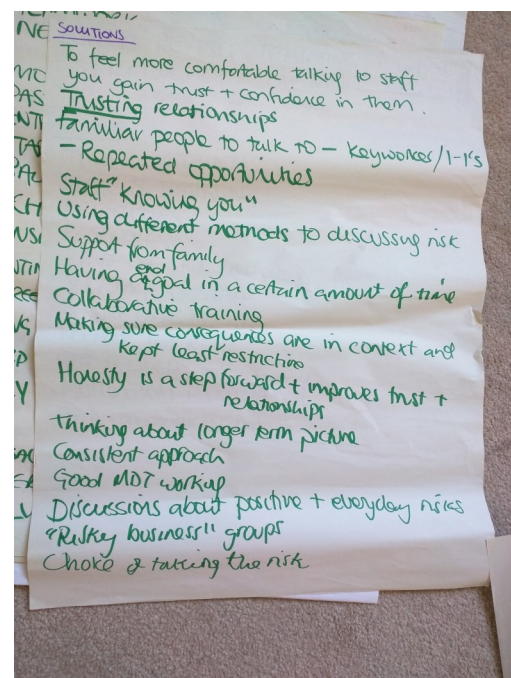 SOLUTIONS
To feel more comfortable talking to staff
you gain trust + confidence in them.
Trusting relationships
familiar people to talk to – keyworkes/1-1's
– Repeated opportunities
Staff "knowing you"
Using different methods to discussing risk
Support from family
Having end goal in a certain amount of time
Collaborative training
Making sure consequences are in context and
kept least restrictive
Honesty is a step forward + improves trust +
relationships
Thinking about longer term picture
Consistent approach
Good MDT working
Discussions about positive + everyday risks
"Risky business" groups
taking the risk